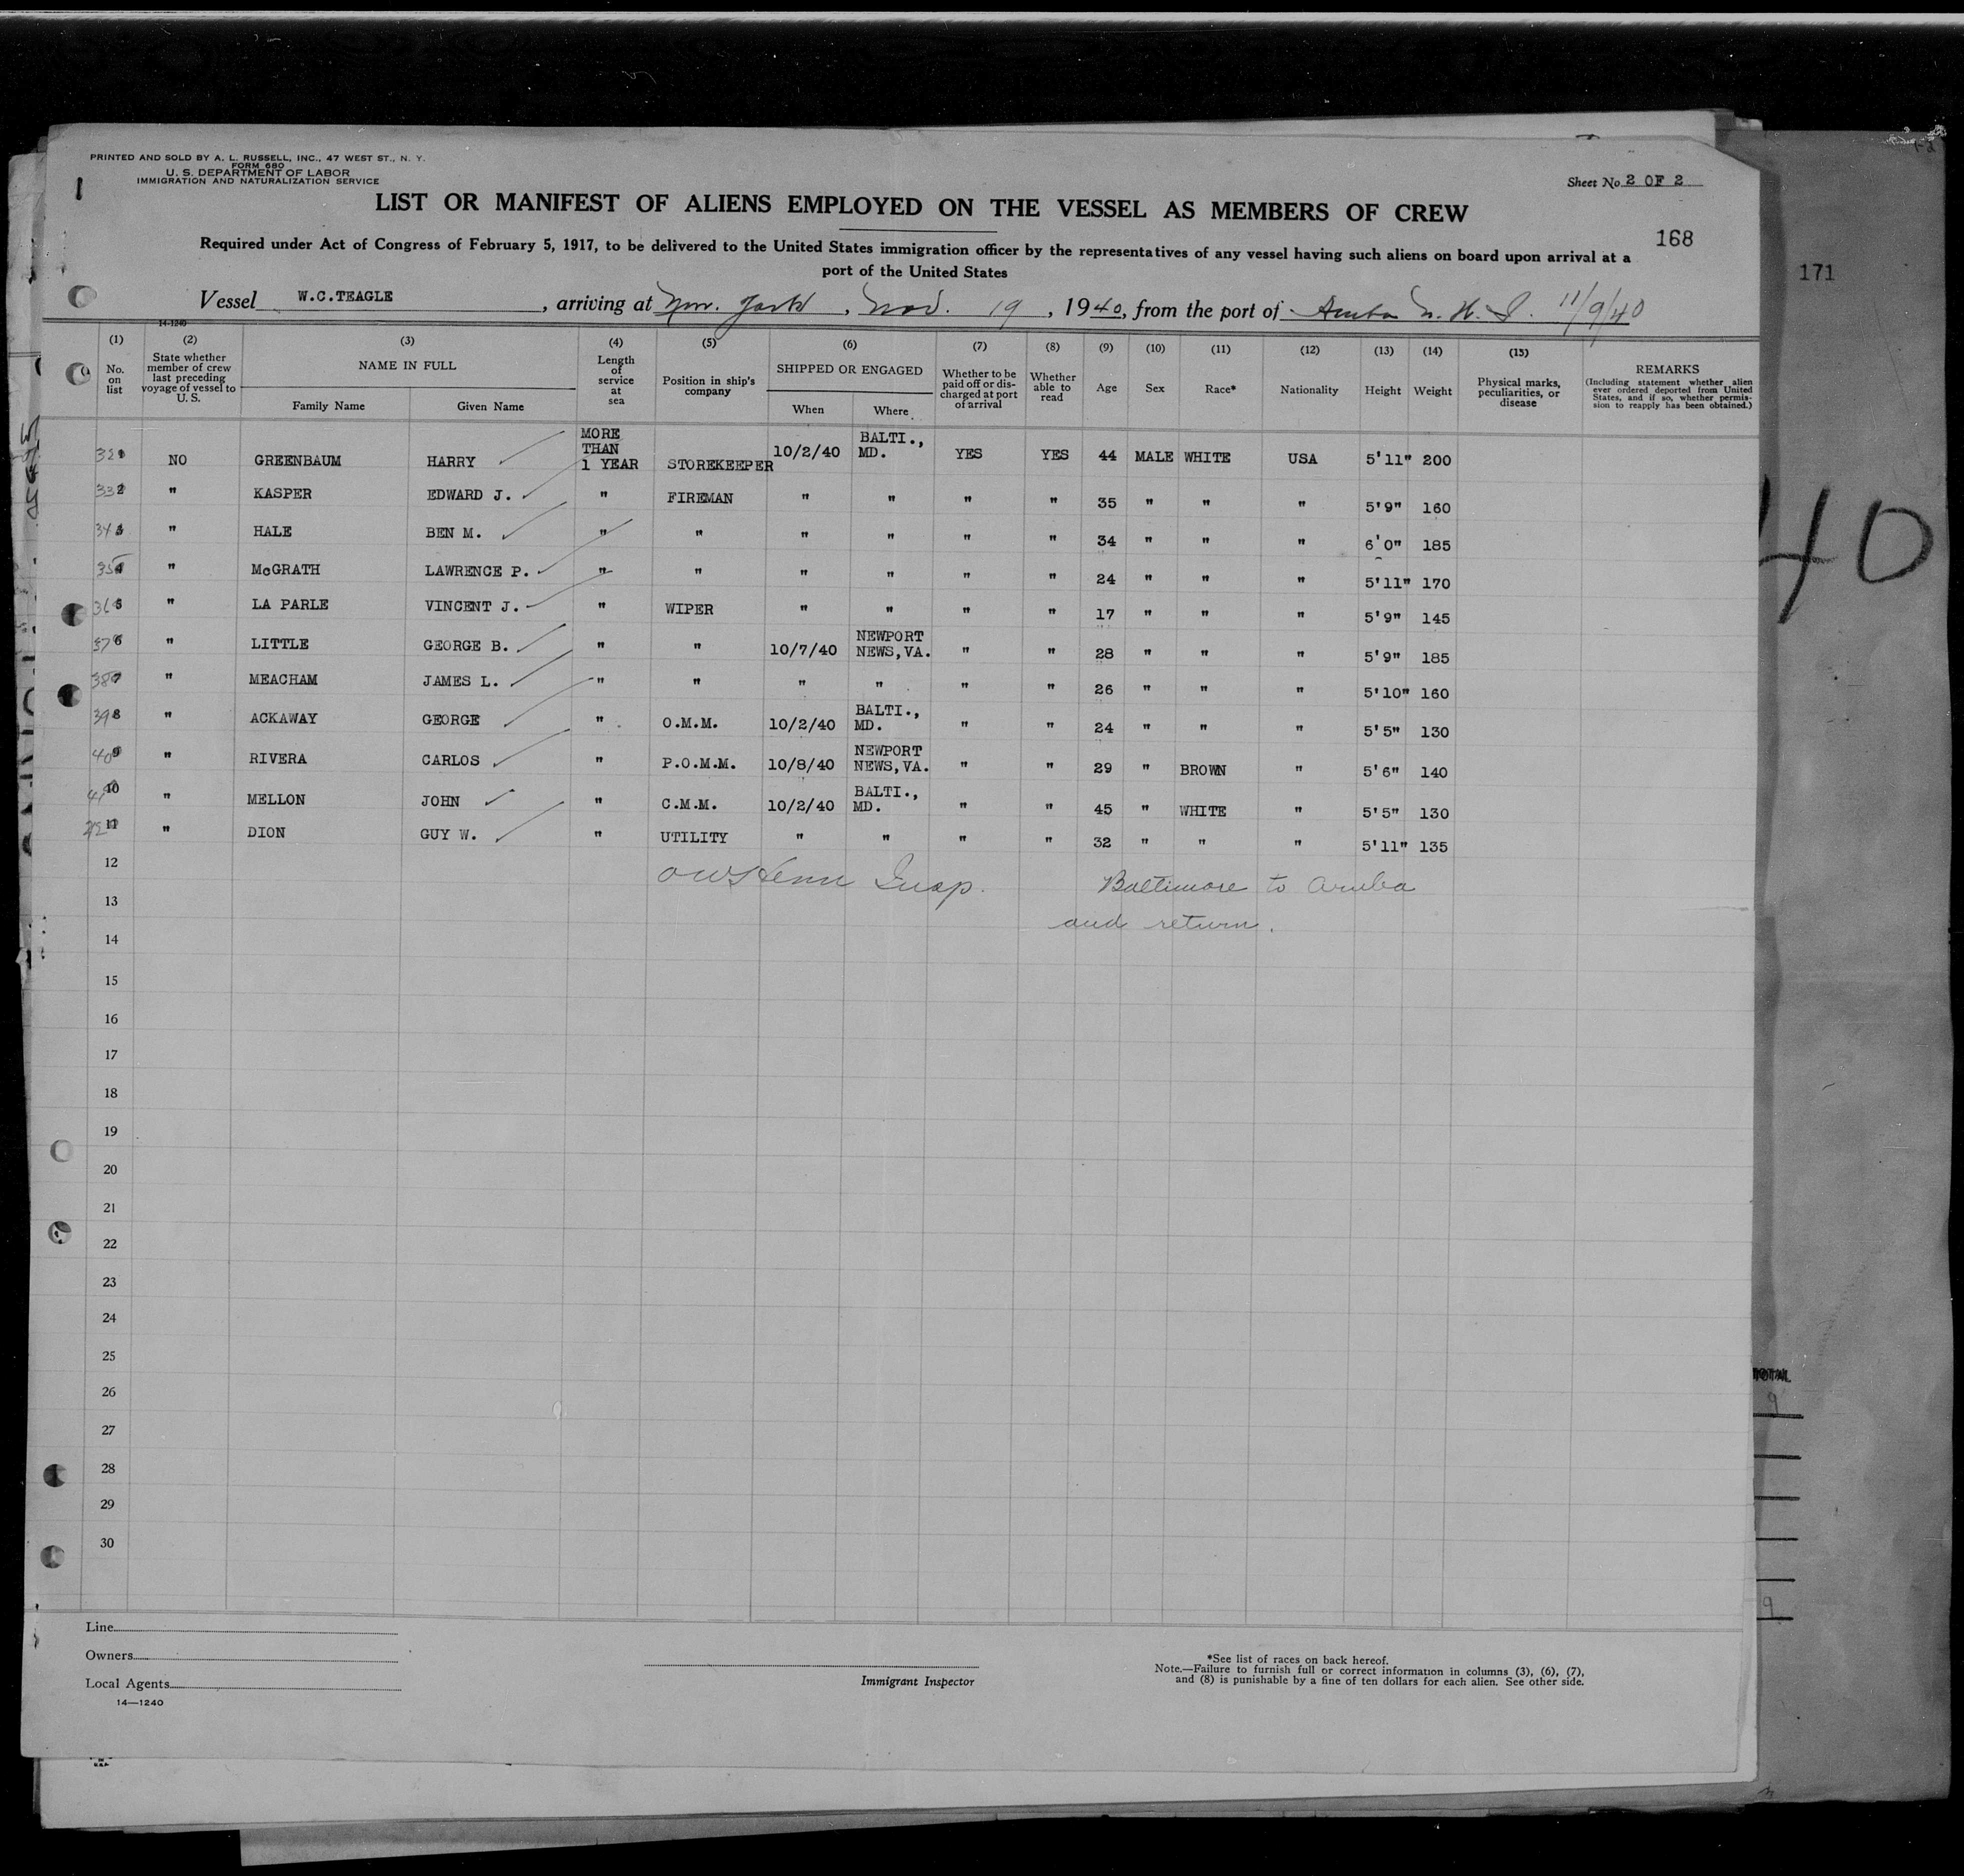 PRINTED AND SOLD BY A. L. RUSSELL, INC., 47 WEST ST., N. Y.
FORM 680
U. S. DEPARTMENT OF LABOR
IMMIGRATION AND NATURALIZATION SERVICE
Sheet No. 2 OF 2
LIST OR MANIFEST OF ALIENS EMPLOYED ON THE VESSEL AS MEMBERS OF CREW
168
Required under Act of Congress of February 5, 1917, to be delivered to the United States immigration officer by the representatives of any vessel having such aliens on board upon arrival at a
port of the United States
171
Vessel W.C.TEAGLE, arriving at New York, Nov. 19, 1940, from the port of Aruba N. W. I. 11/9/40
14-1240
(1) No. on list
(2) State whether member of crew last preceding voyage of vessel to U. S.
(3) NAME IN FULL Family Name Given Name
(4) Length of service at sea
(5) Position in ship's company
(6) SHIPPED OR ENGAGED When Where
(7) Whether to be paid off or discharged at port of arrival
(8) Whether able to read
(9) Age
(10) Sex
(11) Race*
(12) Nationality
(13) Height
(14) Weight
(15) Physical marks, peculiarities, or disease
REMARKS (Including statement whether alien ever ordered deported from United States, and if so, whether permission to reapply has been obtained.)
32 NO GREENBAUM HARRY MORE THAN 1 YEAR STOREKEEPER 10/2/40 BALTI., MD. YES YES 44 MALE WHITE USA 5'11" 200
33 " KASPER EDWARD J. " FIREMAN " " " " 35 " " " 5'9" 160
34 " HALE BEN M. " " " " " " 34 " " " 6'0" 185
35 " McGRATH LAWRENCE P. " " " " " " 24 " " " 5'11" 170
36 " LA PARLE VINCENT J. " WIPER " " " " 17 " " " 5'9" 145
37 " LITTLE GEORGE B. " " 10/7/40 NEWPORT NEWS,VA. " " 28 " " " 5'9" 185
38 " MEACHAM JAMES L. " " " " " " 26 " " " 5'10" 160
39 " ACKAWAY GEORGE " O.M.M. 10/2/40 BALTI., MD. " " 24 " " " 5'5" 130
40 " RIVERA CARLOS " P.O.M.M. 10/8/40 NEWPORT NEWS,VA. " " 29 " BROWN " 5'6" 140
41 10 " MELLON JOHN " C.M.M. 10/2/40 BALTI., MD. " " 45 " WHITE " 5'5" 130
42 11 " DION GUY W. " UTILITY " " " " 32 " " " 5'11" 135
12 Insp. Baltimore to Aruba
13 and return.
14
15
16
17
18
19
20
21
22
23
24
25
26
27
28
29
30
40
TOTAL
9
9
Line
Owners
Local Agents
14—1240
Immigrant Inspector
*See list of races on back hereof.
Note.—Failure to furnish full or correct information in columns (3), (6), (7),
and (8) is punishable by a fine of ten dollars for each alien. See other side.